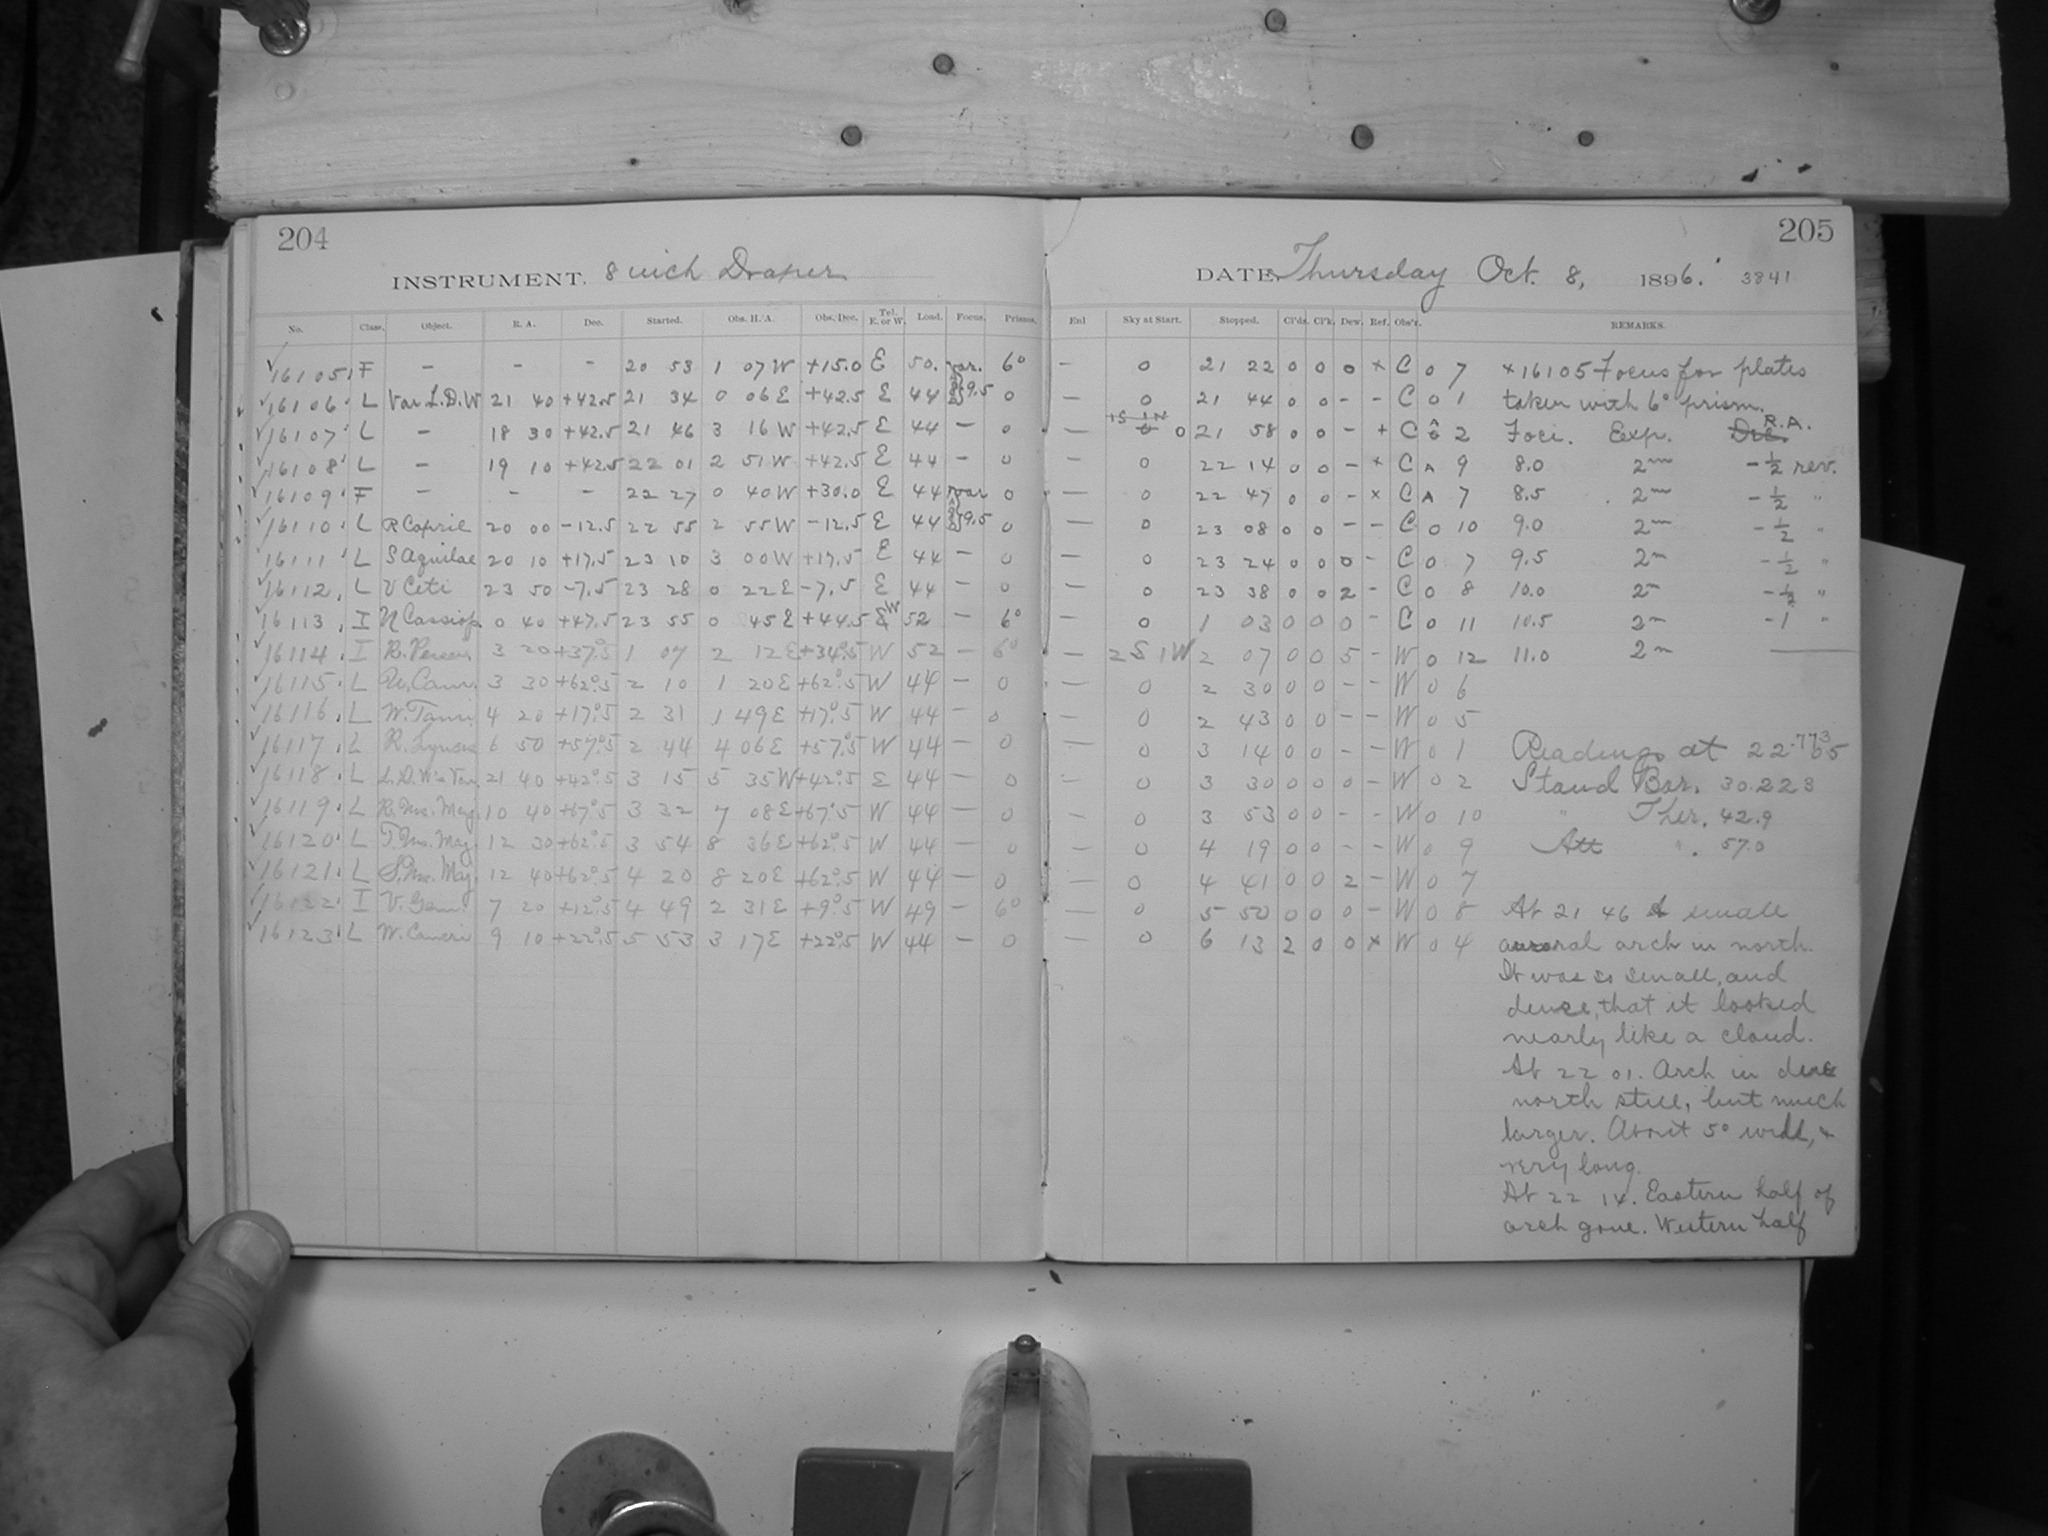 204
INSTRUMENT. 8 inch Draper
No. Class. Object. R. A. Dec. Started. Obs. H. A. Obs. Dec. Tel. E. or W. Load. Focus. Prisms.
16105 F — - - - 20 53 1 07 W +15.0 E 50. var. 6°
16106 L Var L.D.W 21 40 +42.5 21 34 0 06 E +42.5 E 44 9.5 0
16107 L — 18 30 +42.5 21 46 3 16 W +42.5 E 44 — 0
16108 L — 19 10 +42.5 22 01 2 51 W +42.5 E 44 — 0
16109 F — - - 22 27 0 40 W +30.0 E 44 var 0
16110 L R Capric 20 00 -12.5 22 55 2 55 W -12.5 E 44 9.5 0
16111 L S Aquilae 20 10 +17.5 23 10 3 00 W +17.5 E 44 — 0
16112 L V Ceti 23 50 -7.5 23 28 0 22 E -7.5 E 44 — 0
16113 I η Cassiop. 0 40 +47.5 23 55 0 45 E +44.5 W 52 — 6°
16114 I R. Persei 3 20 +37°.5 1 07 2 12 E +34°.5 W 52 — 6°
16115 L U. Cam. 3 30 +62°.5 2 10 1 20 E +62°.5 W 44 — 0
16116 L W. Tauri 4 20 +17°.5 2 31 1 49 E +17°.5 W 44 — 0
16117 L R. Lyncis 6 50 +57°.5 2 44 4 06 E +57°.5 W 44 — 0
16118 L L.D. W's Var. 21 40 +42°.5 3 15 5 35 W +42°.5 E 44 — 0
16119 L R. Urs. Maj. 10 40 +67°.5 3 32 7 08 E +67°.5 W 44 — 0
16120 L T. Urs. Maj. 12 30 +62°.5 3 54 8 36 E +62°.5 W 44 — 0
16121 L S. Urs. Maj. 12 40 +62°.5 4 20 8 20 E +62°.5 W 44 — 0
16122 I V. Gem. 7 20 +12°.5 4 49 2 31 E +9°.5 W 49 — 6°
16123 L W. Cancri 9 10 +22°.5 5 53 3 17 E +22°.5 W 44 — 0
205
DATE, Thursday Oct. 8, 1896. 3841
Enl Sky at Start. Stopped. Cl'ds. Cl'k. Dew. Ref. Obs'r. REMARKS.
— 0 21 22 0 0 0 × C 0 7
— 0 21 44 0 0 - - C 0 1
— 0 21 58 0 0 - + C 2
— 0 22 14 0 0 - × C A 9
— 0 22 47 0 0 - × C A 7
— 0 23 08 0 0 - - C 0 10
— 0 23 24 0 0 0 - C 0 7
— 0 23 38 0 0 2 - C 0 8
— 0 1 03 0 0 0 - C 0 11
— 2 S 1 W 2 07 0 0 5 - W 0 12
— 0 2 30 0 0 - - W 0 6
— 0 2 43 0 0 - - W 0 5
— 0 3 14 0 0 - - W 0 1
— 0 3 30 0 0 0 - W 0 2
— 0 3 53 0 0 - - W 0 10
— 0 4 19 0 0 - - W 0 9
— 0 4 41 0 0 2 - W 0 7
— 0 5 50 0 0 0 - W 0 8
— 0 6 13 2 0 0 × W 0 4
×16105 Focus for plates
taken with 6° prism.
Foci. Exp. R.A.
8.0 2m -½ rev.
8.5 2m -½ "
9.0 2m -½ "
9.5 2m -½ "
10.0 2m -½ "
10.5 2m -1 "
11.0 2m —
Readings at 22
Stand Bar. 30.223
" Ther. 42.9
Att " . 57.0
At 21 46 A small
auroral arch in north.
It was so small, and
dense, that it looked
nearly like a cloud.
At 22 01. Arch in
north still, but much
larger. About 5° wide, +
very long.
At 22 14. Eastern half of
arch gone. Western half